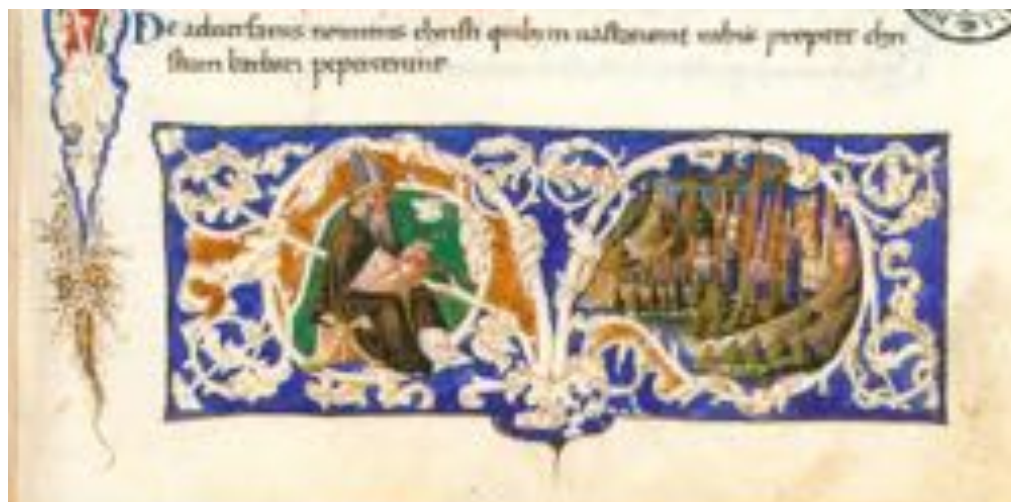 De aduersariis nominis christi quibus in uastatione urbis propter chri
stum barbari pepercerunt